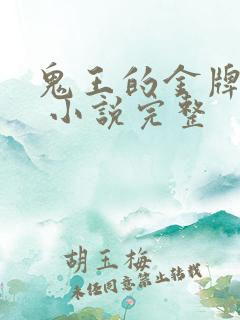 鬼王的金牌
小說完整
胡玉梅
未经同意禁止转载